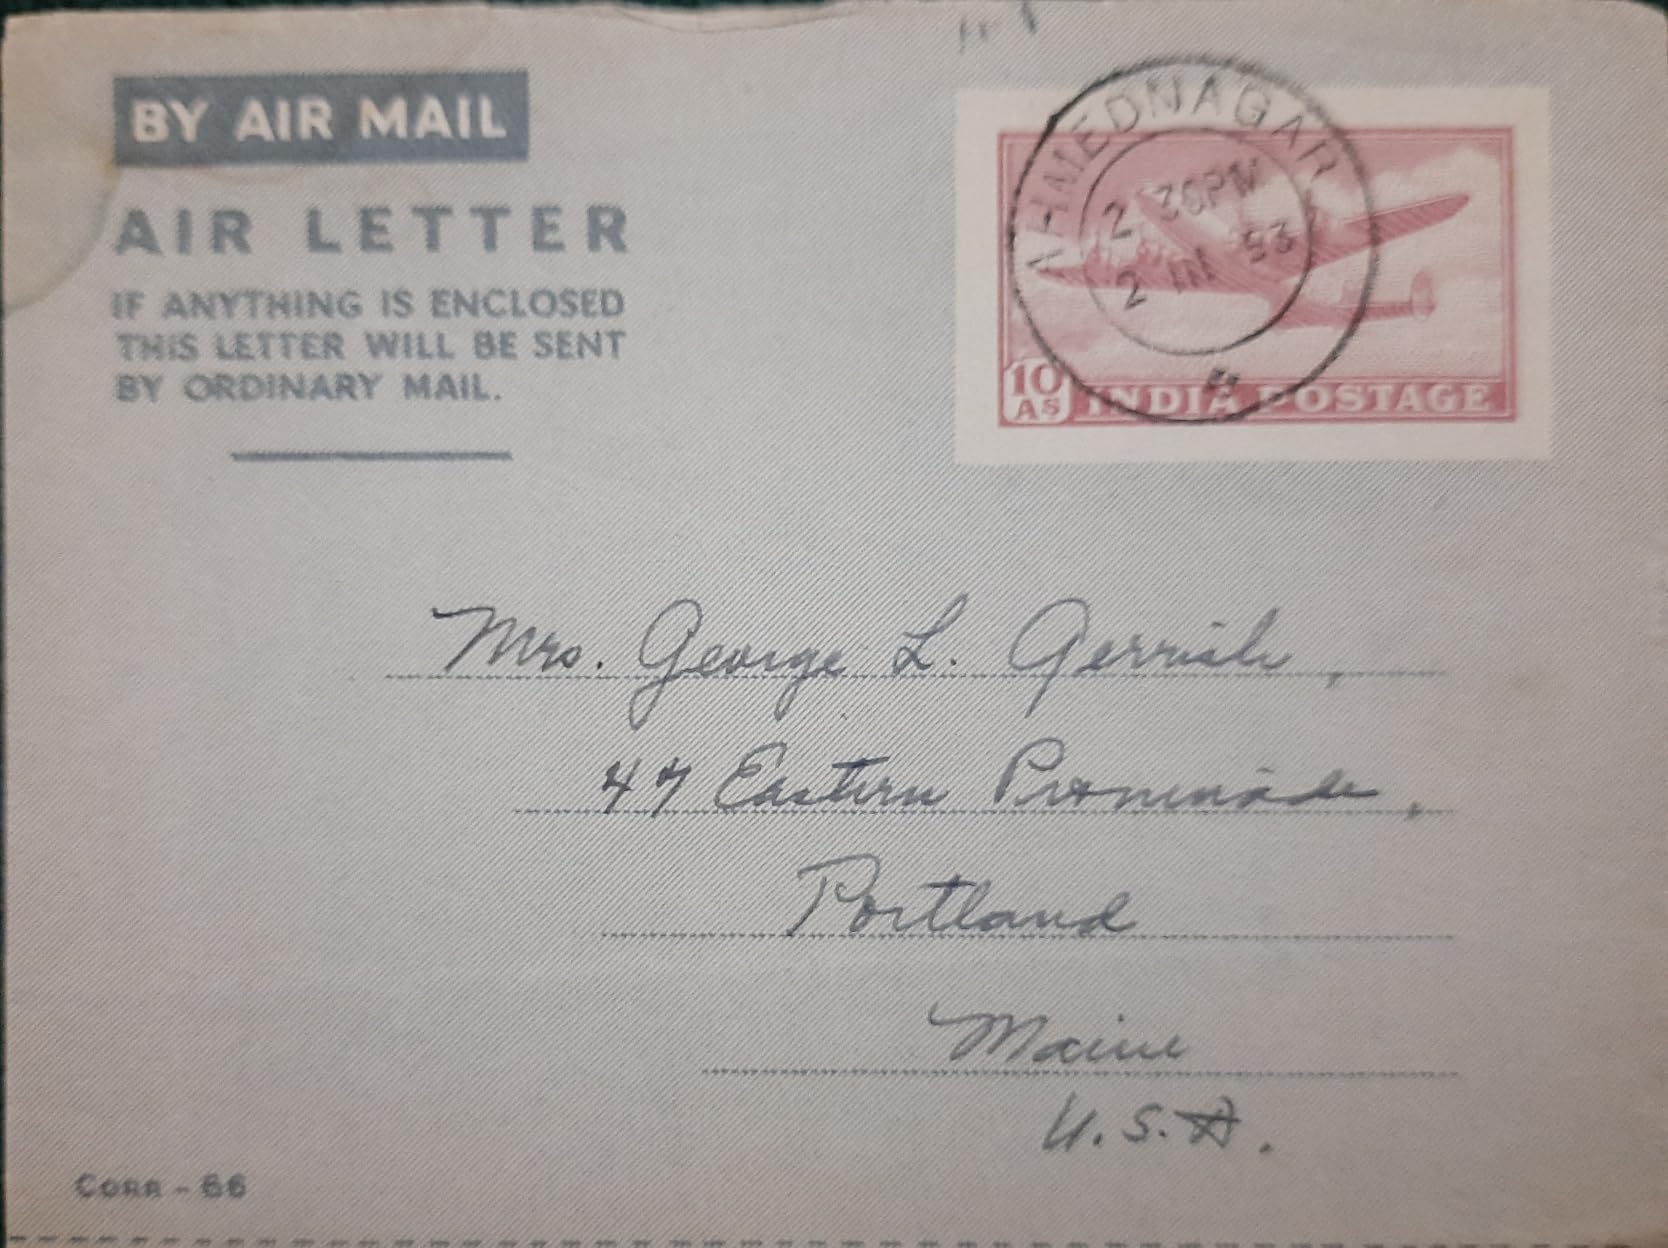 BY AIR MAIL
AIR LETTER
IF ANYTHING IS ENCLOSED
THIS LETTER WILL BE SENT
BY ORDINARY MAIL.
AHMEDNAGAR
2 30PM
2 53
10 AS INDIA POSTAGE
Mrs. George L. Gerrish,
47 Eastern Promenade,
Portland
Maine
U.S.A.
CORR - 66